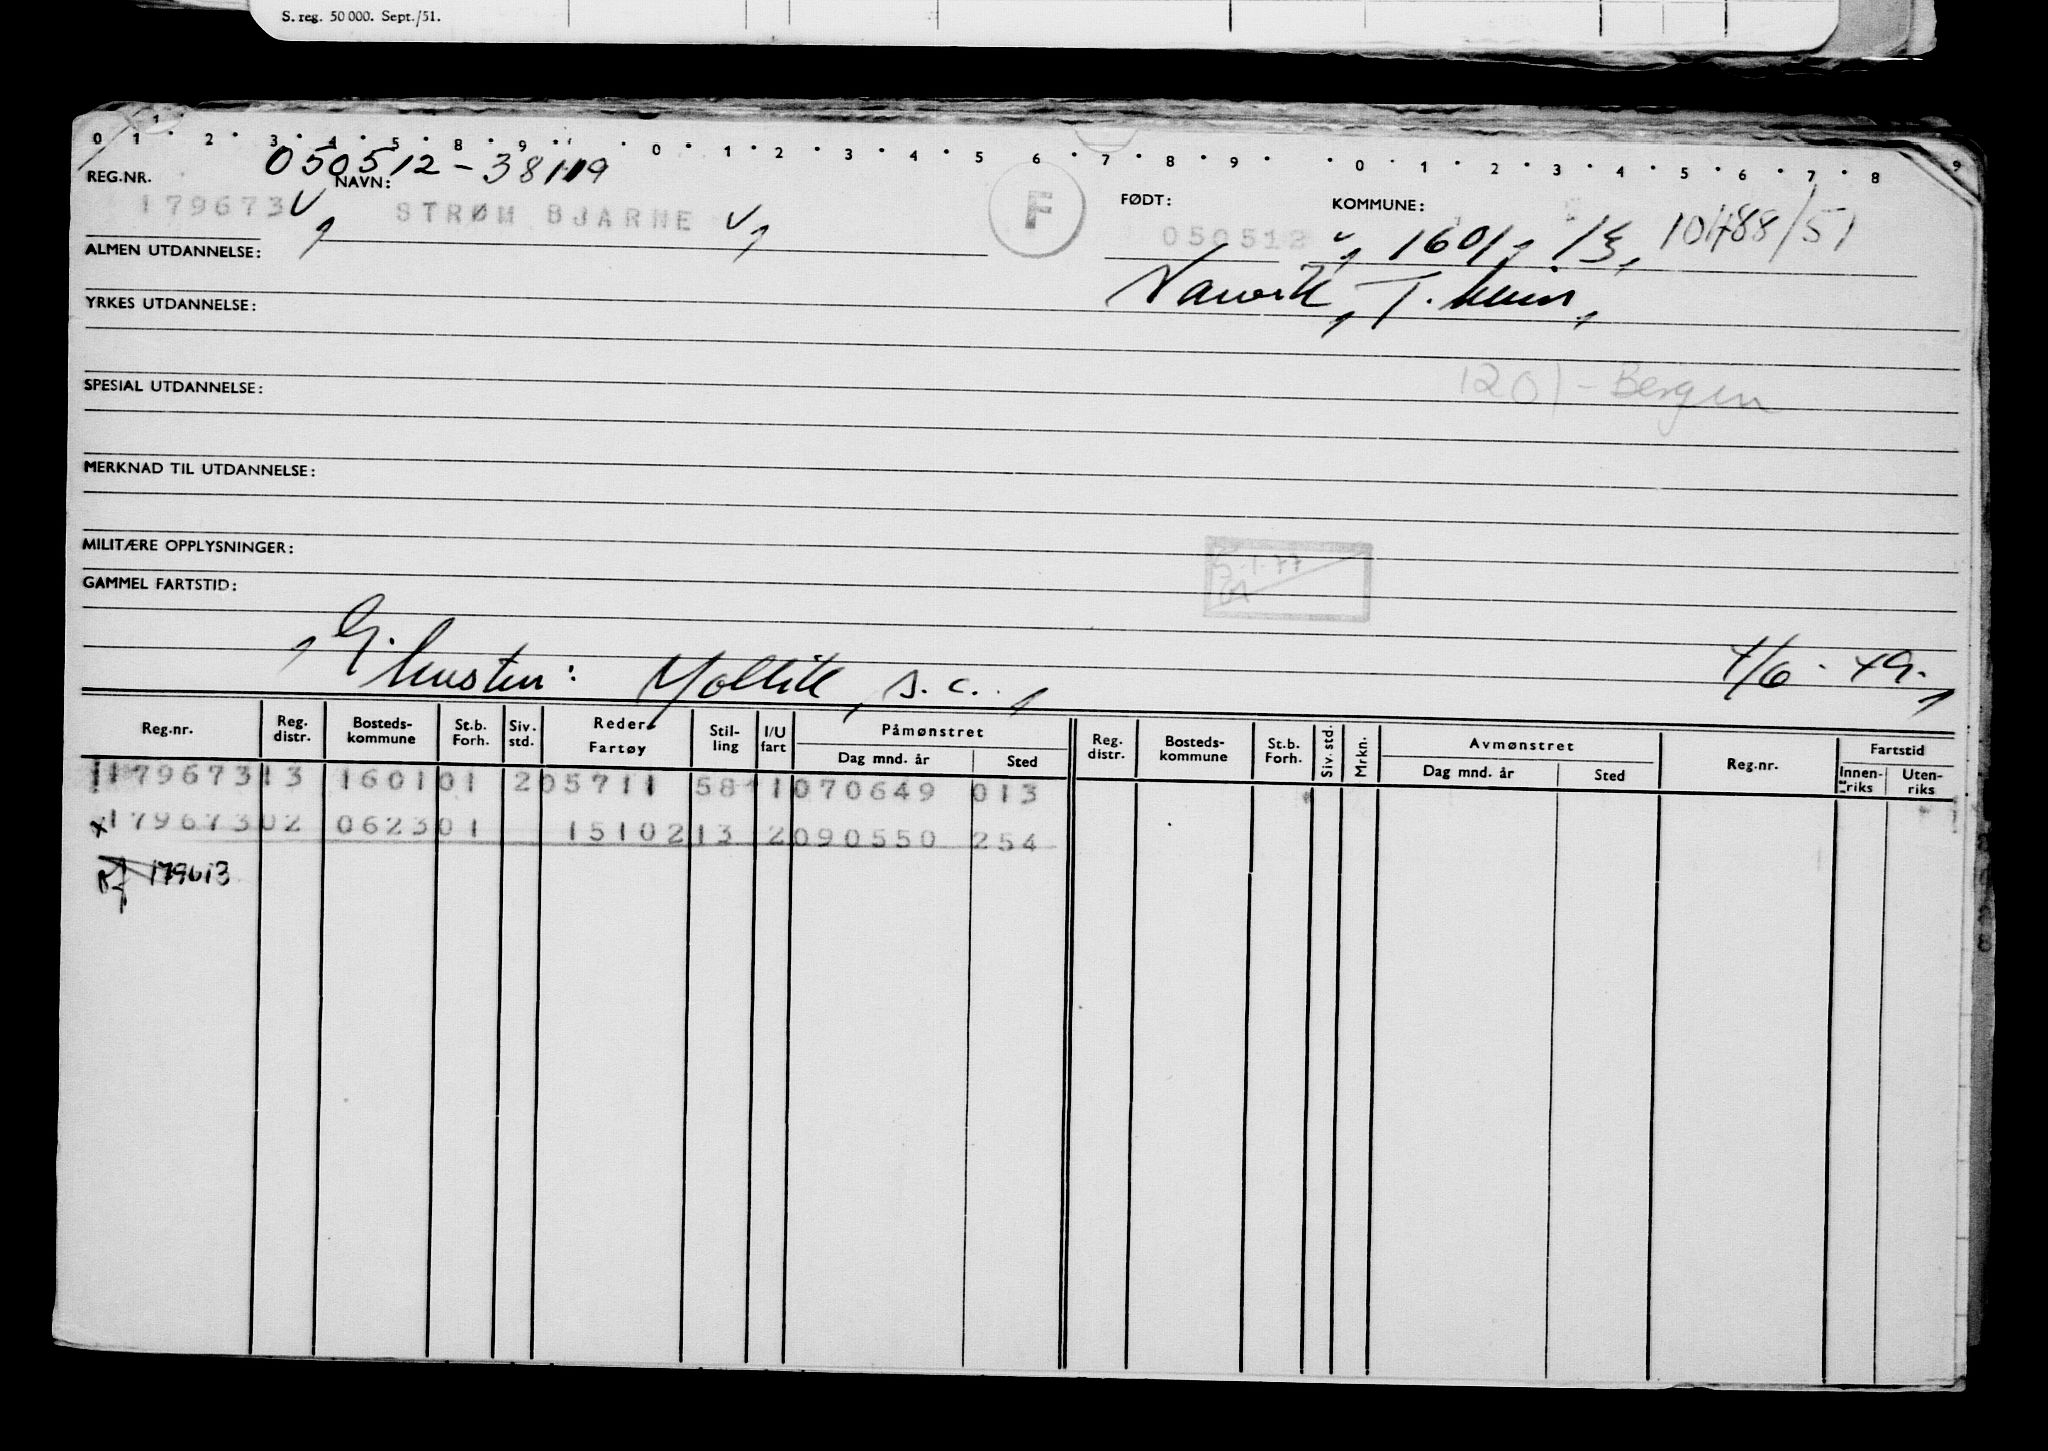 S. reg. 50 000. Sept./51.
0 1 2 3 4 5 8 9 0 1 2 3 4 5 6 7 8 9 0 1 2 3 4 5 6 7 8 9
050512-38119
REG.NR. NAVN: FØDT: KOMMUNE:
179673 STRØM BJARNE F 050512 1601, 13, 10488/51
ALMEN UTDANNELSE:
YRKES UTDANNELSE:
SPESIAL UTDANNELSE: 1201 - Bergen
MERKNAD TIL UTDANNELSE:
MILITÆRE OPPLYSNINGER:
5.1.77
GAMMEL FARTSTID:
s.c.
Reg.nr. Reg. distr. Bosteds-kommune St.b. Forh. Siv. std. Reder Fartøy Stil-ling I/U fart Påmønstret Dag mnd. år Sted Reg. distr. Bosteds-kommune St.b. Forh. Siv. std. Mrkn. Avmønstret Dag mnd. år Sted Reg.nr. Fartstid Innen-riks Uten-riks
179673 13 1601 01 2 05711 58 1 070649 013
x 179673 02 0623 01 15102 13 2 090550 254